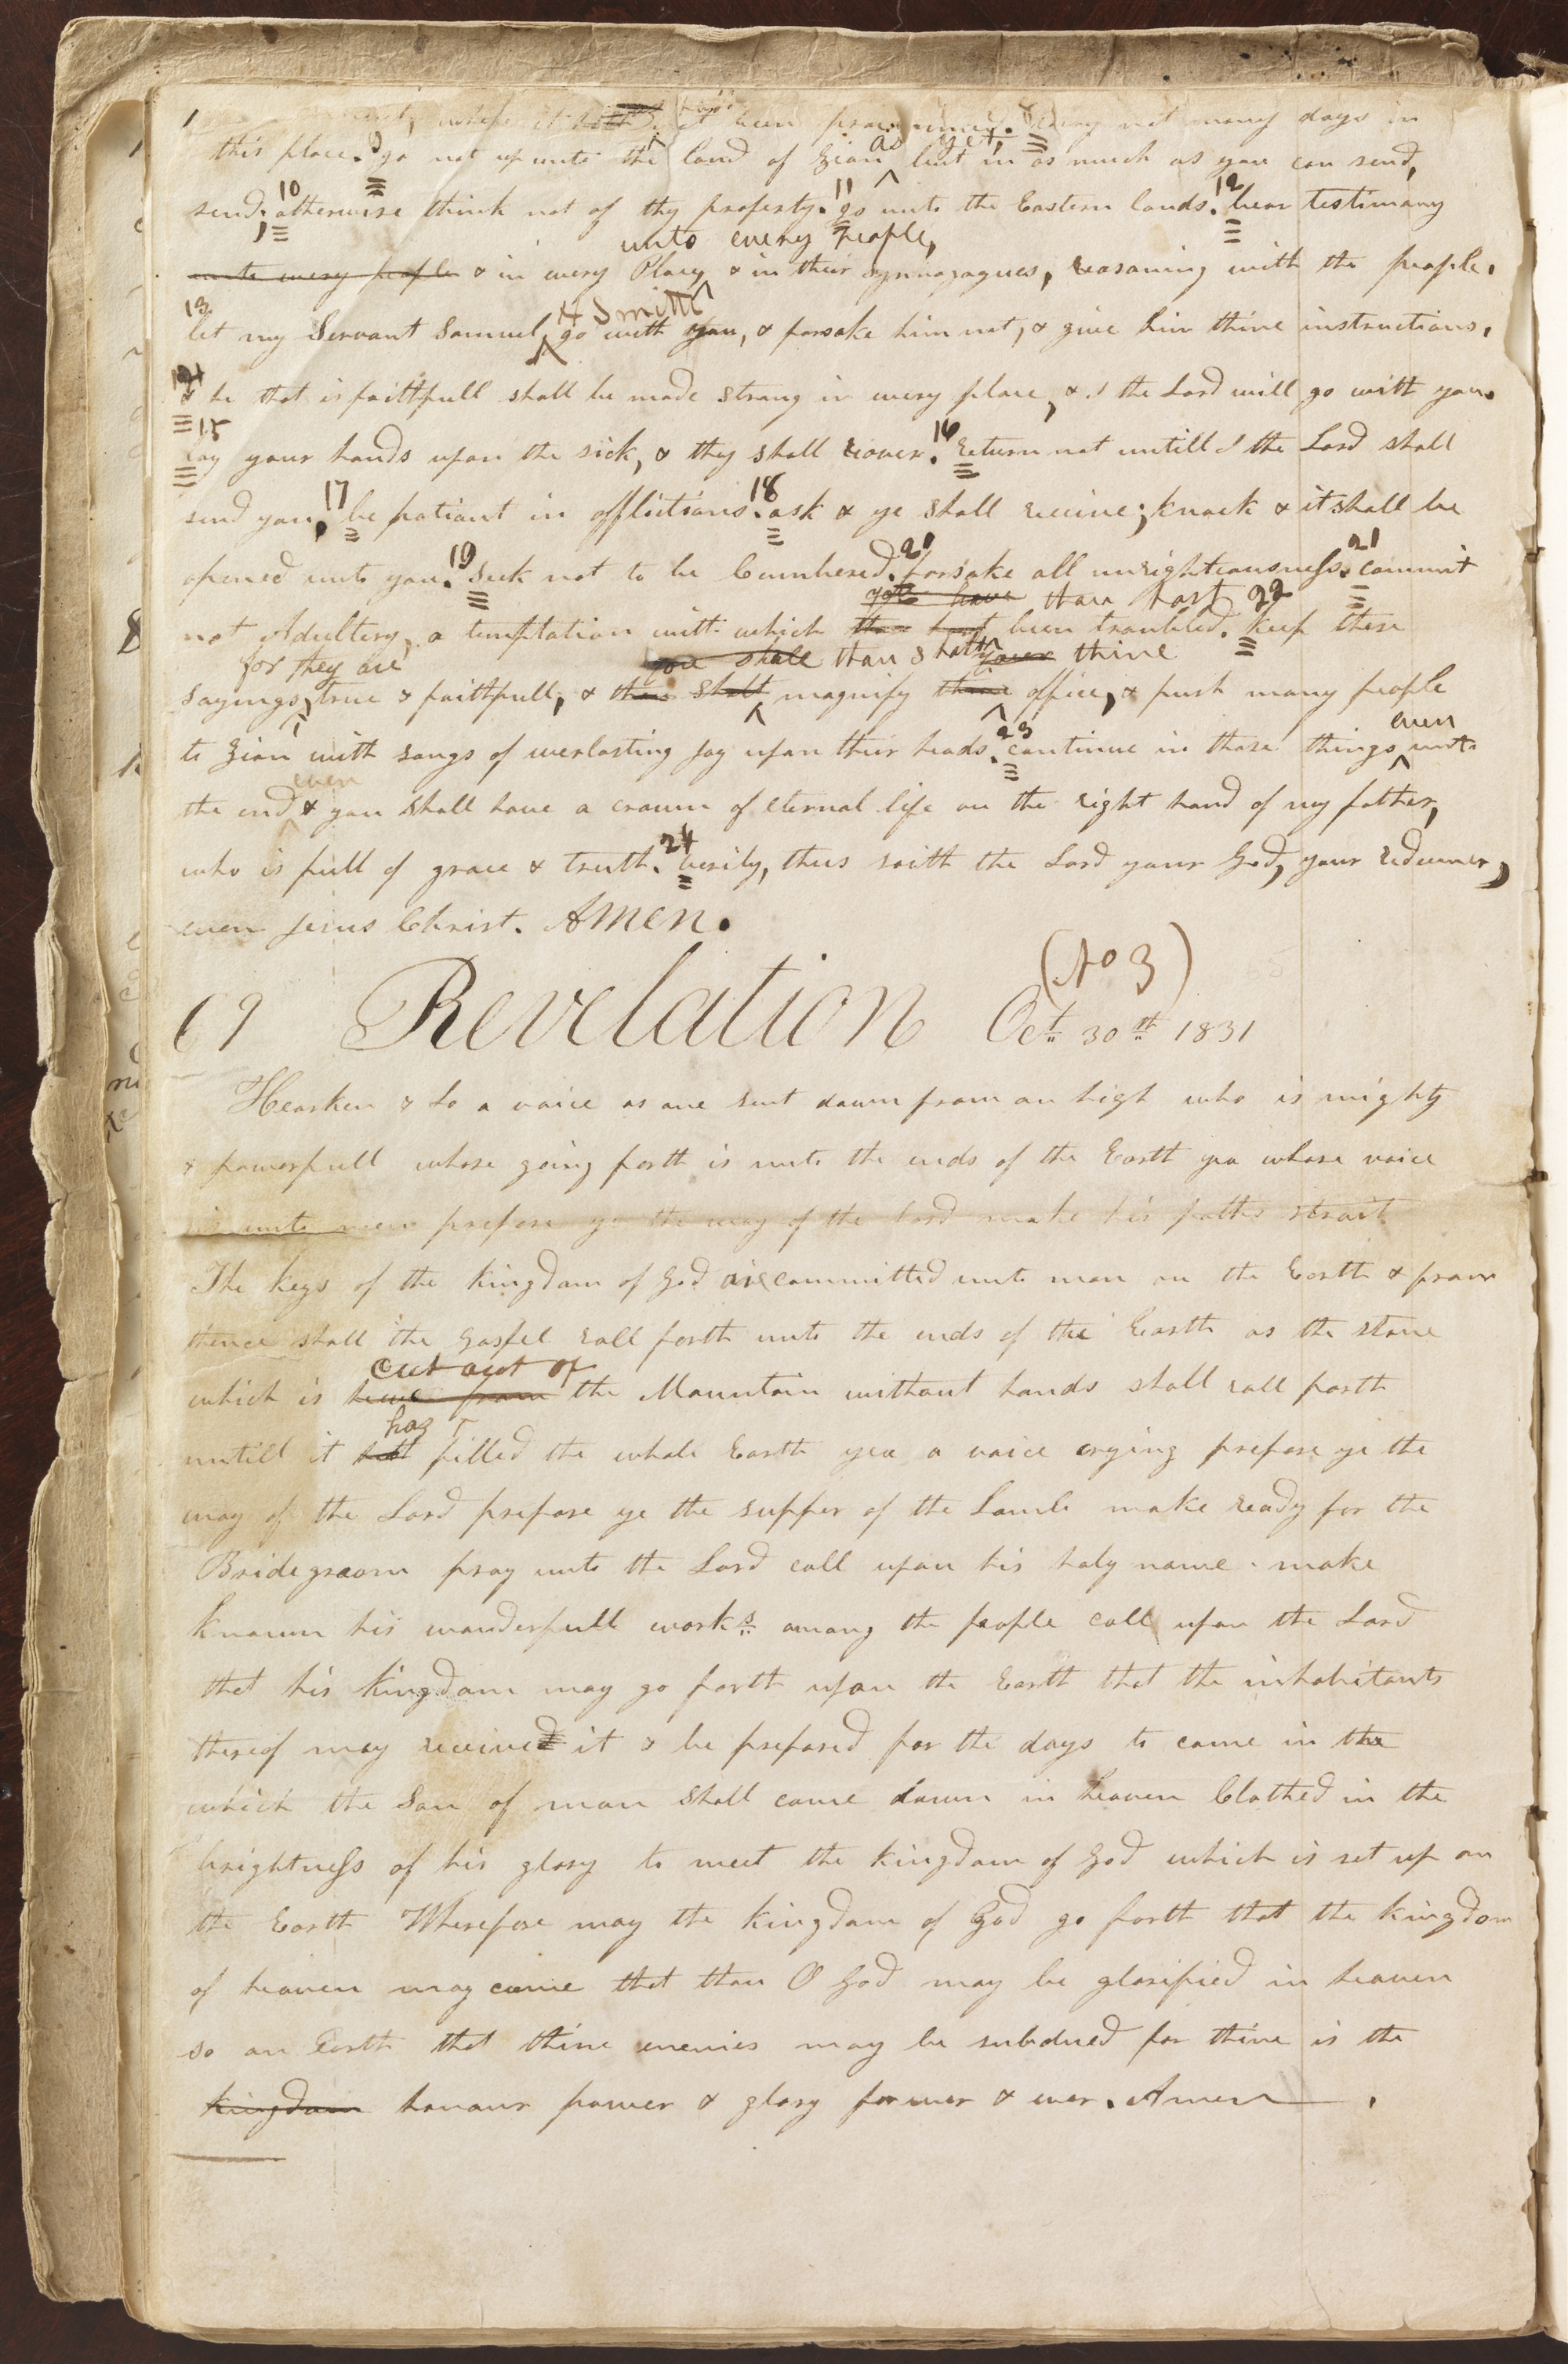 where it hath not been proclaimed. Tarry not many days in
this place. 9 go not up unto the land of Zion as yet, but in as much as you can send,
send; 10 otherwise think not of thy property. 11 go unto the Eastern lands. 12 bear testimony
unto every People,
unto every people & in every Place, & in their synnagogues, reasoning with the people.
H Smith
13 let my Servant Samuel, go with you, & forsake him not, & give him thine instructions,
14 & he that is faithfull shall be made strong in every place, & I the Lord will go with you.
15 Lay your hands upon the sick, & they shall recover. 16 return not untill I the Lord shall
send you, 17 be patiant in afflictions. 18 ask & ye shall receive; knock & it shall be
opened unto you. 19 Seek not to be Cumbered. 20 forsake all unrighteousness. 21 commit
you have thou hast
not Adultery, a temptation with which thou hast been troubled. 22 keep these
for they are you shall thou shalt your thine
sayings, true & faithfull, & thou shalt magnify thine office, & push many people
to Zion with songs of everlasting joy upon their heads. 23 continue in these things even unto
even
the end & you shall have a crown of eternal life on the right hand of my father,
who is full of grace & truth. 24 verily, thus saith the Lord your God, your redeemer,
even Jesus Christ. Amen.
(No 3)
69 Revelation Oct. 30th 1831
Hearken & Lo a voice as one sent down from on high who is mighty
& powerfull whose going forth is unto the ends of the Earth yea whose voice
is unto men prepare ye the way of the Lord make his paths strait
The keys of the kingdom of God are committed unto man on the Earth & from
thence shall the Gospel roll forth unto the ends of the Earth as the stone
cut out of
which is hewe from the Mountain without hands shall roll forth
has
untill it hath filled the whole Earth yea a voice crying prepare ye the
way of the Lord prepare ye the supper of the Lamb make ready for the
Bridegroom pray unto the Lord call upon his holy name make
known his wonderfull works among the people call upon the Lord
that his kingdom may go forth upon the Earth that the inhabitants
thereof may received it & be prepared for the days to come in the
which the Son of man shall come down in heaven Clothed in the
brightness of his glory to meet the kingdom of God which is set up on
the Earth Wherefore may the kingdom of God go forth that the kingdom
of heaven may come that thou O God may be glorified in heaven
so on Earth that thine enemies may be subdued for thine is the
kingdom honour power & glory forever & ever. Amen.